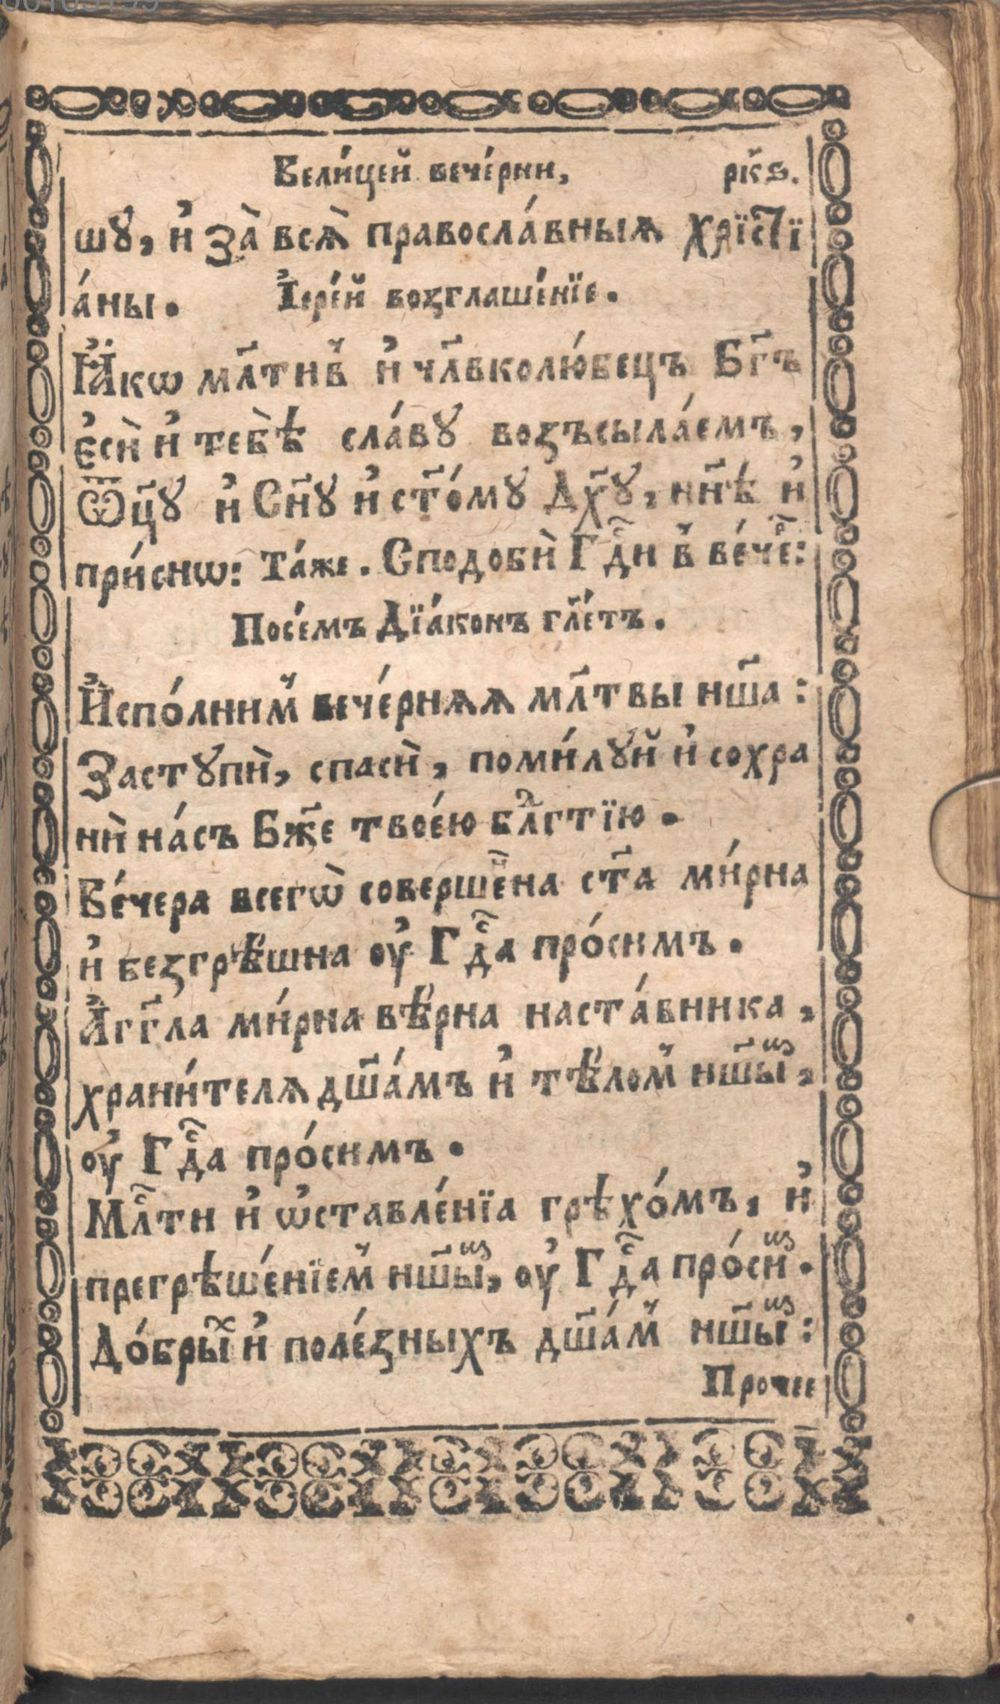 Вели́цей вече́рни, рк҃ѕ.
шꙋ, и҆ за̀ всѧ̀ правосла́вныѧ хрїстї
а́ны. І҆ере́й возглаше́нїе.
Ꙗ҆́кѡ мл҃тивъ и҆ чл҃вколю́бецъ Бг҃ъ
є҆сѝ и҆ тебѣ̀ сла́вꙋ возъсыла́емъ,
Ѿц҃ꙋ и҆ Сн҃ꙋ и҆ ст҃о́мꙋ Дх҃ꙋ, нн҃ѣ и҆
при́снѡ: Та́же. Сподобѝ Гдⷭ҇и в̾ ве́чеⷬ҇:
Посе́мъ Дїа́конъ гл҃етъ.
И҆спо́лним̾ вече́рнѧѧ мл҃твы нш҃а:
Застꙋпѝ, спасѝ, поми́лꙋй и҆ сохра
нѝ на́съ Бж҃е твое́ю блⷣгтїю.
Ве́чера всегѡ̀ совершеⷩ҇на ст҃а ми́рна
и҆ безгрѣ́шна ᲂу҆ Гдⷭ҇а про́симъ.
А҆́гг҃ла ми́рна вѣ́рна наста́вника,
храни́телѧ дш҃а́мъ и҆ тѣ́лом̾ нш҃ыⷨ,
ᲂу҆ Гдⷭ҇а про́симъ.
Млⷭ҇ти и҆ ѡ҆ставле́нїа грѣхо́мъ, и҆
прегрѣше́нїем̾ нш҃ыⷨ, ᲂу҆ Гдⷭ҇а про́сиⷨ.
До́брыⷯ и҆ поле́зныхъ дш҃а́м̾ нш҃ыⷨ:
Прочее